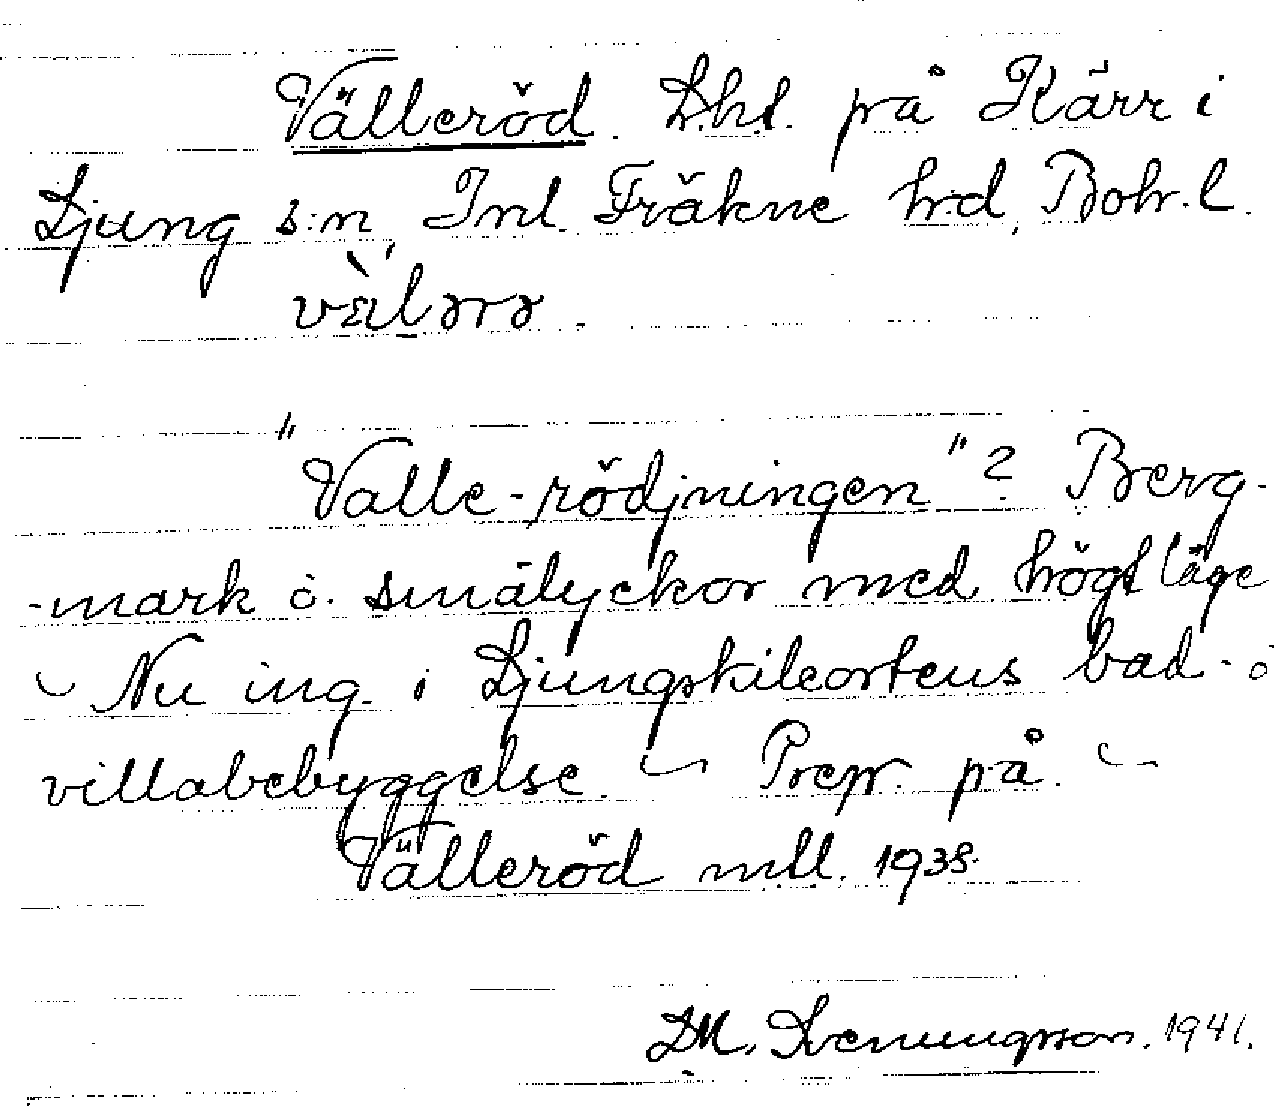 Välleröd. L.ht. på Kärr i
Ljung s:n, Inl. Fräkne h:d, Boh. l.
vɛ̀lərə.
"Valle-rödjningen"? Berg-
-mark o. smålyckor med högt läge
Nu ing. i Ljungskileortens bad- o
villabebyggelse. Prep. på
Välleröd mtl. 1938
1941.